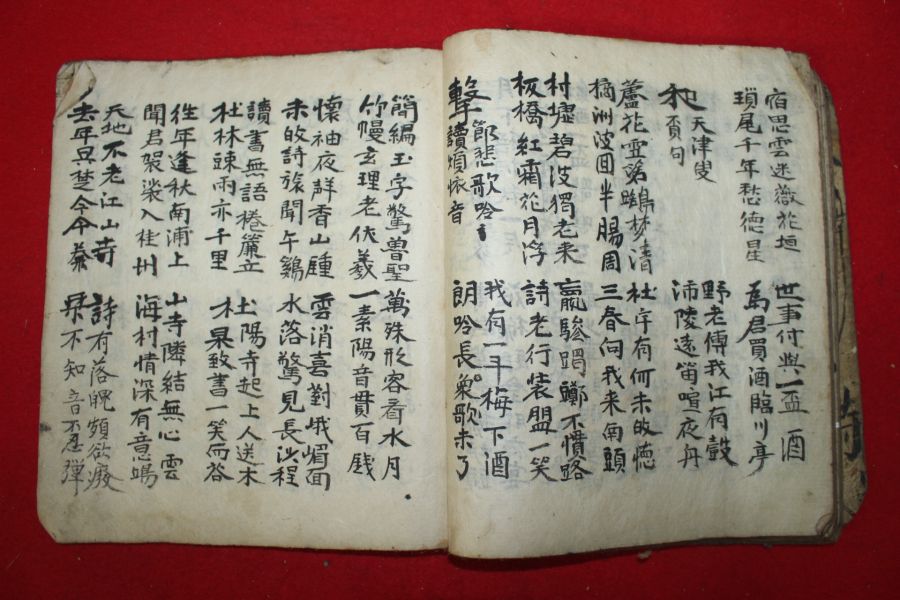 宿思雲迷薇花垣 世事付與一盃酒
瑣尾千年愁德星 爲君買酒臨川亭
和 天津叟 野老傳我江有
貢句 沛陵遠笛喧夜丹
蘆花雪 鷄梦清 杜宇有何未
橘洲波回半腸周 三春何我来南頭
村墟碧波獨老来 蹢躅不慣路
板橋紅霜花月浮 詩老行装盟一笑
節悲歌吟 我有一斗梅下酒
擊讀煩 音 朗吟長 歌未了
簡編玉字驚兽聖 萬殊形容看水月
竹幔玄理老伏羲 一素陽音貫百
懷袖夜詳香山 雲消喜對峨嵋面
未 詩旅聞午鷄 水落驚見長沙程
讀書無語捲簾立 陽寺起上人送木
杜林竦雨亦千里 木果致書一笑而谷
徃年逢秋南浦上 山寺隣結無心雲
聞君袈裟入桂州 海村情深有意鴻
天地不老江山寺 詩有落魄頻欲癈
去年吴楚今 不知音不忍彈